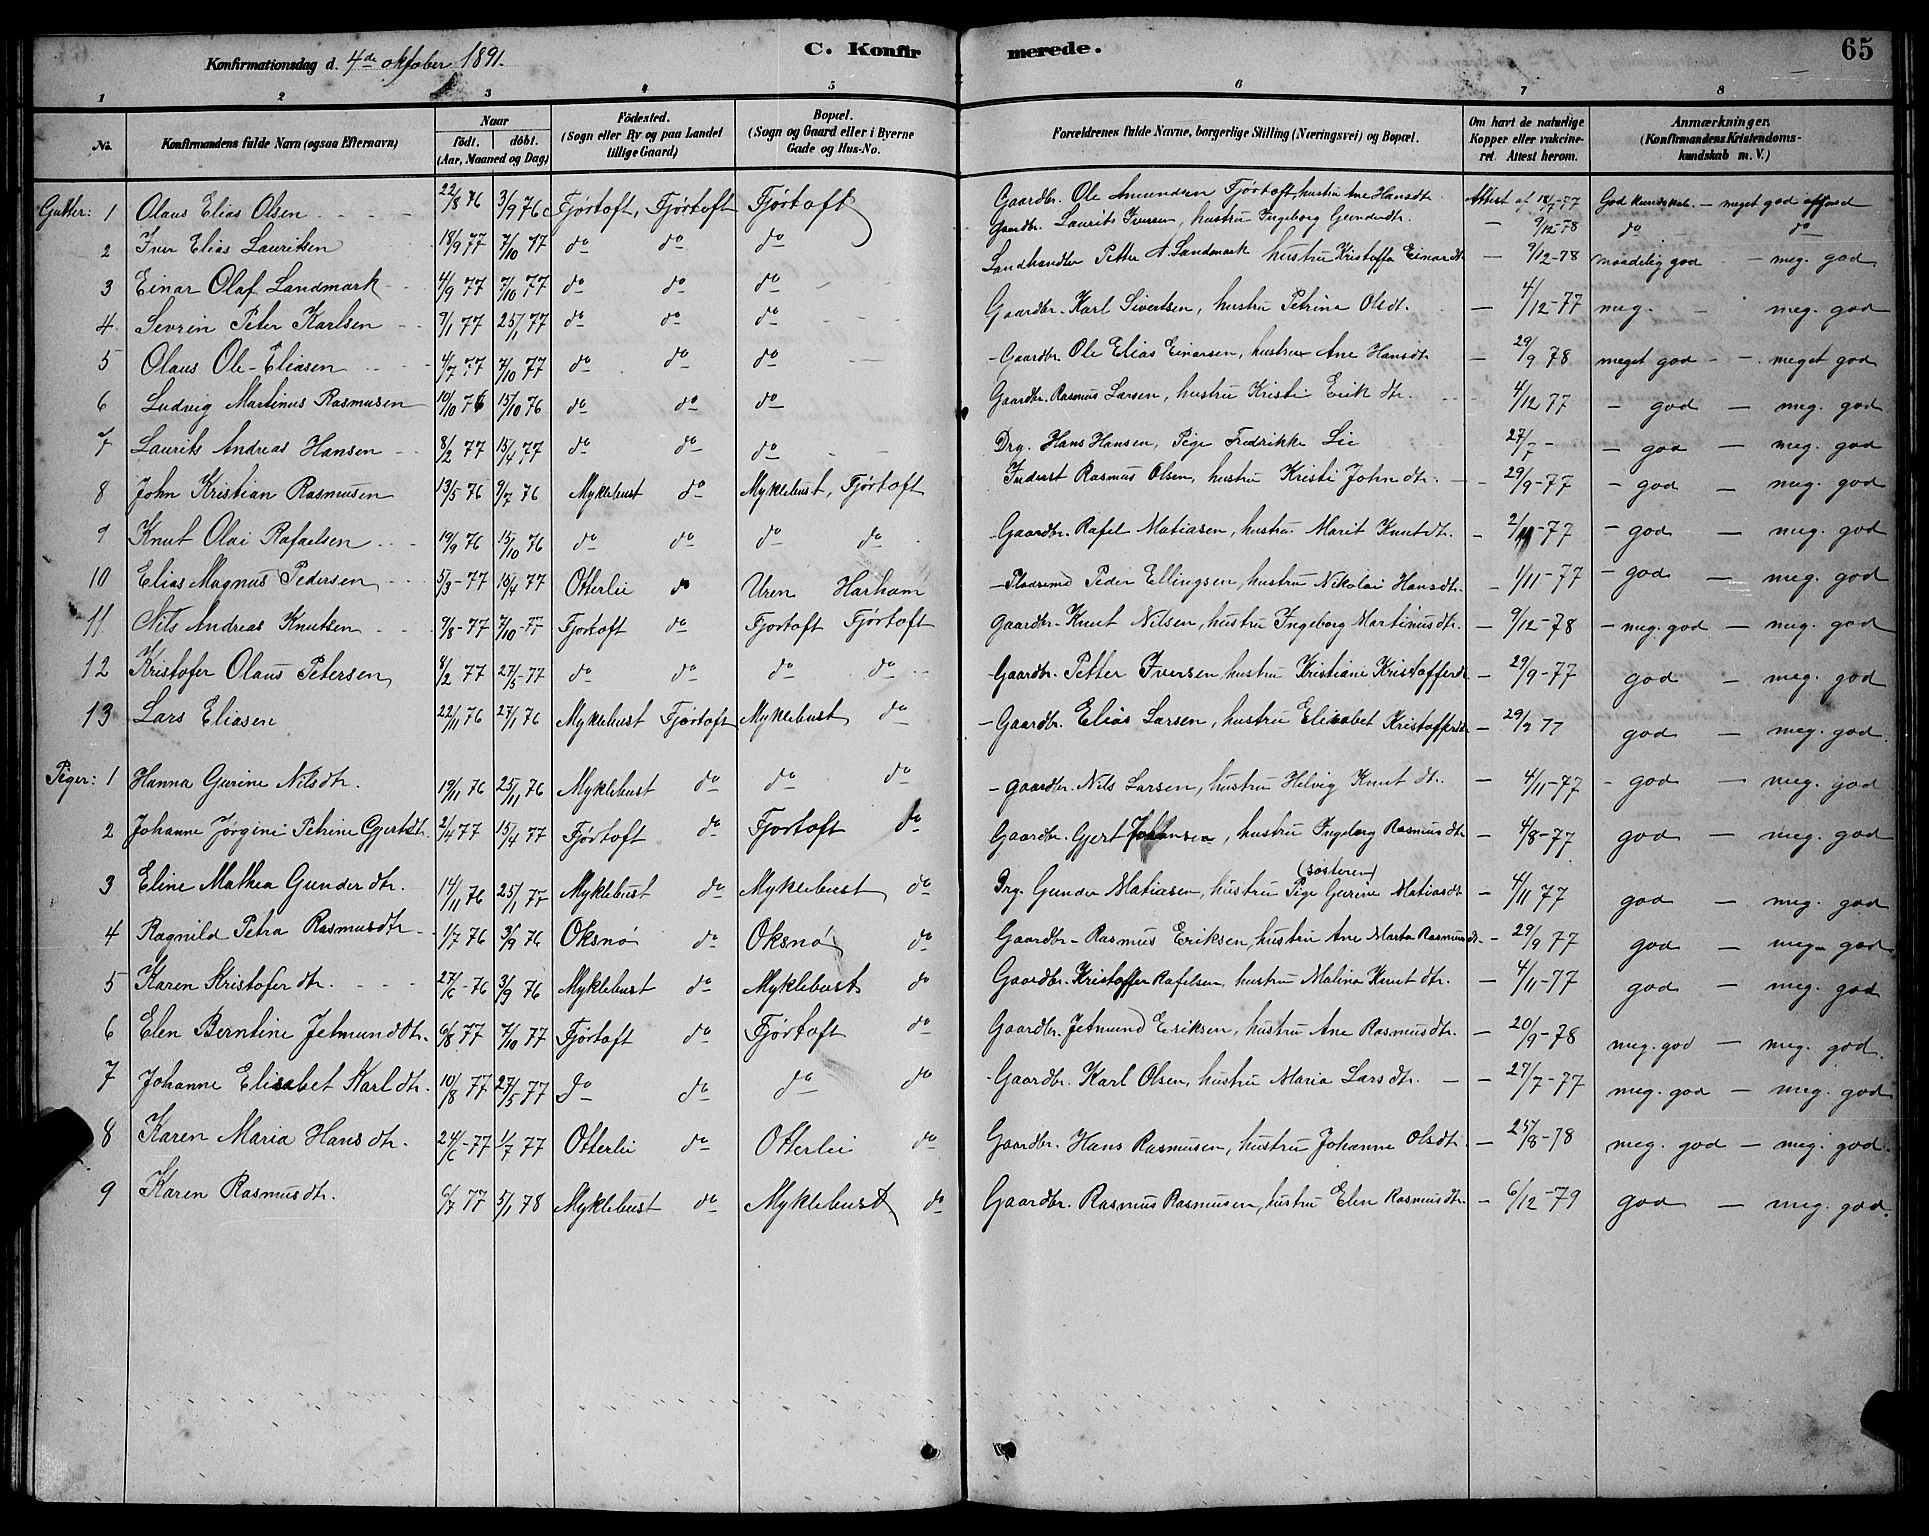 Konfirmationsdag d. 4de oktober 1891.
C. Konfirmerede.
65
1 2 3 4 5 6 7 8
No.
Konfirmandens fulde Navn (ogsaa Efternavn)
Naar födt. döbt. (Aar, Maaned og Dag)
Födested. (Sogn eller By og paa Landet tillige Gaard)
Bopæl. (Sogn og Gaard eller i Byerne Gade og Hus-No.
Forældrenes fulde Navne, borgerlige Stilling (Næringsvei) og Bopæl.
Om havt de naturlige Kopper eller vakcineret. Attest herom.
Anmærkninger. (Konfirmandens Kristendomskundskab m. V.)
Gutter: 1 Olaus Elias Olsen 22/8 76 3/9 76 Fjørtoft, Fjørtoft Fjørtoft Gaardbr. Ole Amundsen Fjørtoft, hustru Ane Hansdt. Attest af 18/7-77 God kundskab. — meget god afferd
2 Iver Elias Lauritsen 18/9 77 7/10 77 do do do Gaardbr. Laurits Iversen, hustru Ingeborg Gunderdt. — 9/12-78 do do
3 Einar Olaf Landmark 4/9 77 7/10 77 do do do Landhandler Petter A. Landmark hustru Kristoffa Einardt — 9/12-78 maadelig god — meg. god.
4 Sevrin Peter Karlsen 9/1 77 25/1 77 do do do Gaardbr. Karl Sivertsen, hustru Petrina Olsdt. — 4/12-77 meg. — meg. god
5 Olaus Ole-Eliasen 4/7 77 7/10 77 do do do Gaardbr. Ole Elias Einarsen, hustru Ane Hansdt — 29/9 78 meget god — meget god
6 Ludvig Martinus Rasmusen 10/10 76 15/10 76 do do do Gaardbr. Rasmus Larsen, hustru Kristi Erik dt. 4/12 77 — god — meg. god
7 Laurits Andreas Hansen 8/2 77 15/4 77 do do do Drg. Hans Hansen, Pige Fredrikke Lie 27/7 - — god — meg. god
8 John Kristian Rasmusen 13/5 76 9/7 76 Myklebust do Myklebust, Fjørtoft Inderst Rasmus Olsen, hustru Kristi John dtr. — 29/9-77 — god — meg. god
9 Knut Olai Rafaelsen 19/9 76 15/10 76 do do do do Gaardbr. Rafel Matiasen, hustru Marit Knutdtr. — 2/11-77 — god — meg. god
10 Elias Magnus Pedersen 5/3-77 15/4 77 Otterlei do Uren Harham Pladsmd Peder Ellingsen, hustru Nikolai Hansdt. — 1/11-77 — god — meg. god
11 Nils Andreas Knutsen 9/8-77 7/10-77 Fjørtoft do Fjortoft Fjørtoft Gaardbr. Knut Nilsen, hustru Ingeborg Martinusdtr. — 9/12-78 — meg. god — meg. god
12 Kristofer Olaus Petersen 8/2 77 27/5-77 do do do do Gaardbr. Petter Iversen, hustru Kristiane Kristofferdt — 29/9-77 god — meg. god
13 Lars Eliasen 22/11 76 27/1 76 Myklebust Fjørtoft Myklebust do Gaardbr. Elias Larsen, hustru Elisabet Kristofferdt — 29/2 77 god — meg. god
Piger: 1 Hanna Gurine Nilsdtr. 19/11 76 25/11 76 Myklebust do do do Gaardbr. Nils Larsen, hustru Helvig Knut dt. — 4/11-77 — god — meg. god
2 Johanne Jørgini Petrine Gjertdtr. 2/4 77 15/4 77 Fjørtoft do Fjortoft do Gaardbr. Gjert Johansen, hustru Ingeborg Rasmusdtr — 4/8-77 god — meg. god
3 Eline Mathea Gunder dtr. 14/11 76 25/1 77 Myklebust do Myklebust do Drg. Gunder Matiasen, hustru (søsteren) Pige Gurine Matiasdt — 4/11 77 god — meg. god
4 Ragnild Petra Rasmusdtr 1/7 76 3/9 76 Oksnø do Oksnø do Gaardbr. Rasmus Eriksen, hustru Ane Marta Rasmusdt — 29/9 77 god — meg. god.
5 Karen Kristofer dtr. 27/6-76 3/9 76 Myklebust do Myklebust do Gaardbr. Kristoffer Rafelsen, hustru Malina Knut dtr. — 4/11-77 god — meg. god
6 Elen Berntine Jetmunddtr. 6/8 77 7/10 77 Fjørtoft do Fjørtoft do Gaardbr. Jetmund Eriksen, hustru Ane Rasmusdtr. — 20/9-78 meg. god — meg. god.
7 Johanne Elisabet Karl dtr. 10/8 77 27/5 77 do do do do Gaardbr. Karl Olsen, hustru Maria Lars dtr. — 27/7-77 meg. god — meg. god
8 Karen Maria Hans dtr. 24/6-77 1/7 77 Otterlei do Otterlei do Gaardbr. Hans Rasmusen, hustru Johanne Olsdtr. — 25/8-78 meg. god — meg. god.
9 Karen Rasmusdtr. 6/7 77 5/1 78 Myklebust do Myklebust do Gaardbr. Rasmus Rasmusen, hustru Elen Rasmusdtr. — 6/12-79 god — meg. god.